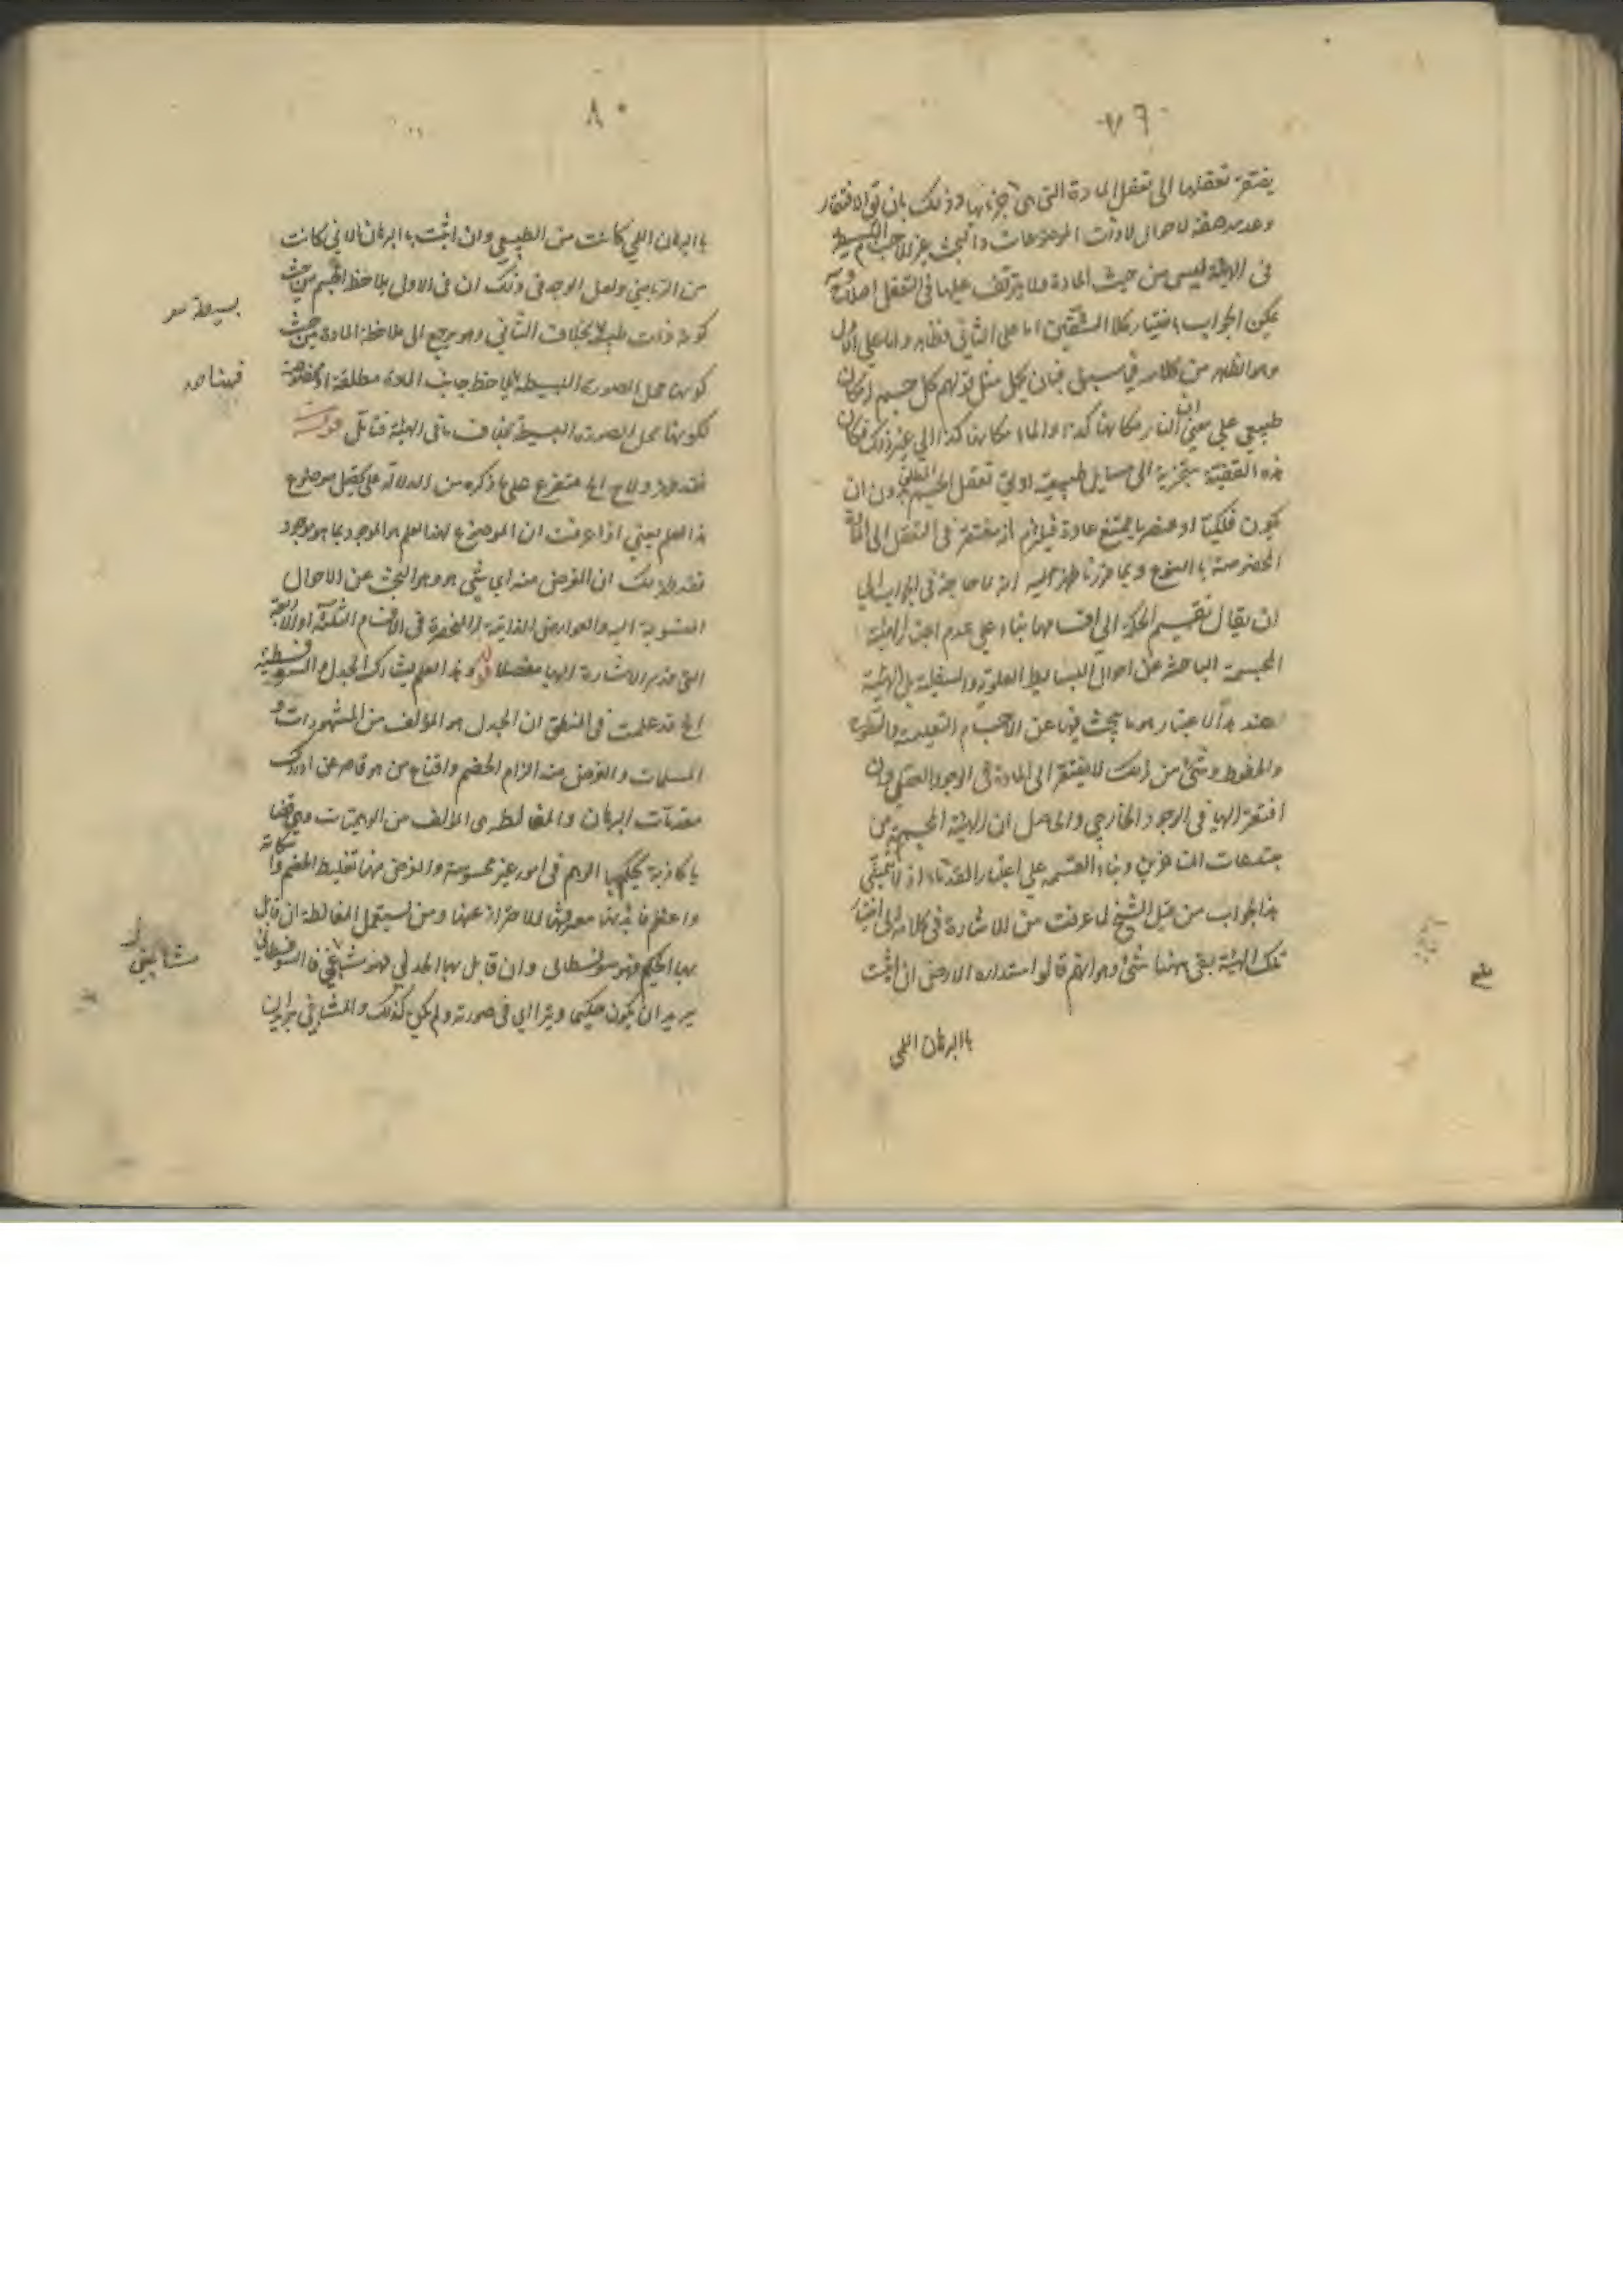 ٧٩
يفتقر تعقلها الى تعقل المادة التى هى جزئها وذلك بان الافتقار
وعدمه صفة لاحوال لاذات الموضوعات والبحث عن الاجسام البسيطة
فى الهيئة ليس من حيث المادة ولا يتوقف عليها فى التعقل اصلا
يمكن الجواب باختيار كلا الشقين اما على الثانى فظاهر واما على الاول
وهو الظاهر من كلامه فى سبيل فبان يحمل مثل قولهم كل جسم له مكان
طبيعي على معنى ان النار مكانها كذا والماء مكانها كذا الى غير ذلك فكان
هذه القضية متجزية الى مسايل طبيعية اولى تعقل الجسم المطلق دون ان
يكون فلكيا او عنصريا ممتنع عادة فيلزم انه مفتقر فى التعقل الى المادة
المخصوصة بالنوع وبما قررنا ظهر انه لا حاجة فى الجواب الى
ان يقال تقسيم الحكمة الى اقسامها بناء على عدم اعتبار الهيئة
المجسمة الباحثة عن احوال البسايط العلوية والسفلية بل الهيئة
عند هذا الاعتبار هو ما يبحث فيها عن الاجسام التعليمية والسطوح
والخطوط وشئ من ذلك لا يفتقر الى المادة فى الوجود العقلى وان
افتقر اليها فى الوجود الخارجى والحاصل ان الهيئة المجسمة من
مخترعات المتاخرين وبناء القسمة على اعتبار القدماء اذ لا يتمشى
هذا الجواب من قبل الشيخ لما عرفت من الاشارة فى كلامه الى اعتبار
تلك الهيئة بقى ههنا شئ وهو انهم قالوا استدارة الارض ان اثبتت
باالبرهان اللمى
٨٠
باالبرهان اللمى كانت من الطبيعي وان اثبتت باالبرهان الانى كانت
من الرياضى ولعل الوجه فى ذلك ان فى الاول يلاحظ الجسم من حيث
كونه ذات طبيعة بخلاف الثانى وهو يرجع الى ملاحظة المادة من حيث
كونها محل الصورة البسيطة يلاحظ جانب المادة مطلقة او مخصوصة
لكونها محل الصورة البسيطة بخلاف باقى الهيئة فتأمل قوله
فقد ظهر ولاح الخ متفرع على ما ذكره من الدلالة على تحصيل موضوع
هذا العلم يعني اذا عرفت ان الموضوع لهذا العلم هو الموجود بما هو موجود
فقد ظهر لك ان الغرض منه اى شئ هو وهو البحث عن الاحوال
المنسوبة اليه والعوارض الذاتية المنحصرة فى الاقسام الثلثة او الاربعة
التى مر الاشارة اليها مفصلا قوله وهذا العلم يشارك الجدل والسوفسطية
الخ قد علمت فى المنطق ان الجدل هو المؤلف من المشهورات و
المسلمات والغرض منه الزام الخصم واقناع من هو قاصر عن ادراك
مقدمات البرهان والمغالطة هى المؤلف من الوهميات وهى قضا
يا كاذبة يحكم بها الوهم فى امور غير محسوسة والغرض منها تغليط الخصم واسكاته
واعظم فائدتها معرفتها للاحتراز عنها ومن يستعمل المغالطة ان قابل
بها الحكيم فهو سوفسطائى وان قابل بها الجدلى فهو مشاغبى فالسوفسطائى
يريد ان يكون حكيما ويترائى فى صورته ولم يكن كذلك والمشاغبى يريد ان
بسيطة
فههنا
مشاغبى